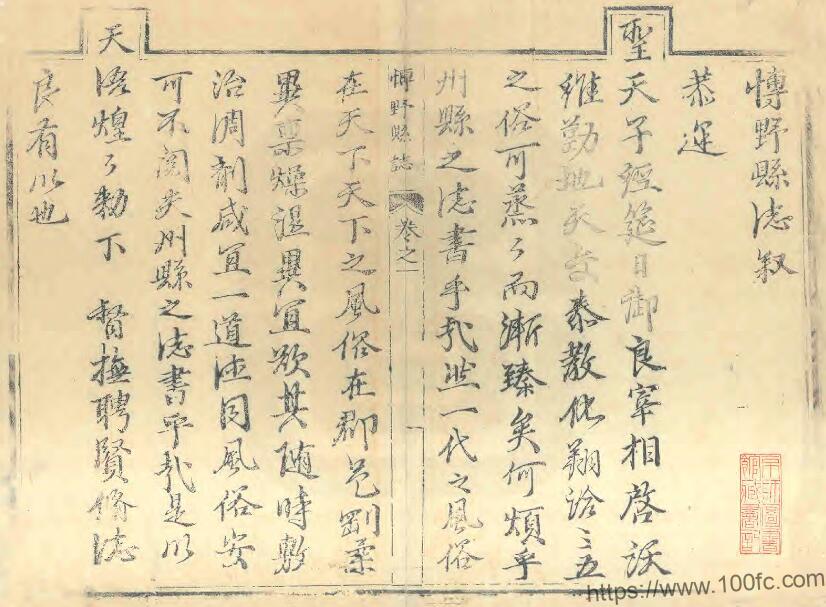 博野縣志叙
恭逢
聖天子經筵日御良宰相啓沃
維勤地天交泰教化翔洽三五
之俗可蒸々而漸臻矣何煩乎
州縣之志書乎哉然一代之風俗
博野縣誌 卷之一
在天下天下之風俗在郡邑剛柔
異稟燥濕異宜欲其随時敷
治調劑咸宜一道德同風俗安
可不関夫州縣之志書乎哉是以
天
語煌々勅下 督撫聘賢脩志
良有以也
京師圖書
館藏書記
https://www.100fc.com